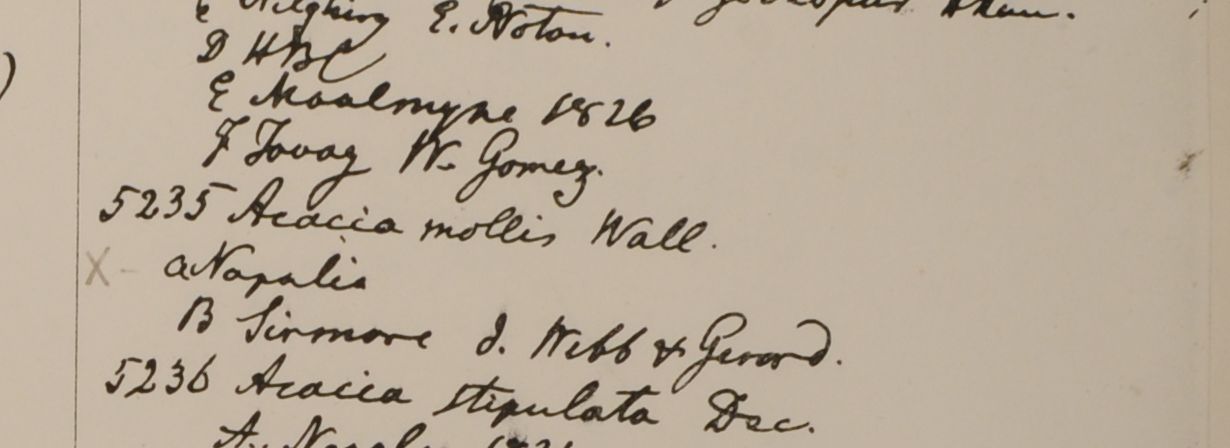 E. Noton.
D HBC
E Moalmyne 1826
F Tavoy W. Gomez.
5235 Acacia mollis Wall.
X - a Napalia
B Sirmore J. Webb & Gerard.
5236 Acacia stipulata Dec.